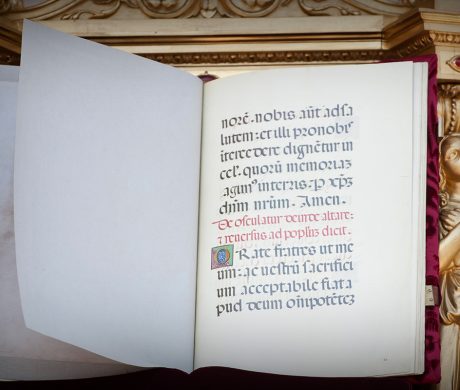 norē. nobis aūt ad sa
lutem: et illi pro nobis
itercedere dignētur in
cel. quorū memoriaz
agim⁹ in terris. P xp̄z
dn̄m nr̄um. Amen.
De osculatur deinde altare:
⁊ reversus ad populū dicit.
ORate fratres ut me
um: ac uestrū sacrifici
um acceptabile fiat a
pud deum om̄ipotētez